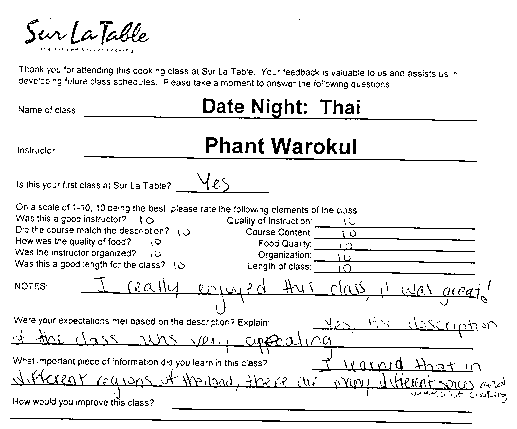 Sur La Table
Thank you for attending this cooking class at Sur La Table. Your feedback is valuable to us and assists us in
developing future class schedules. Please take a moment to answer the following questions
Name of class Date Night: Thai
Instructor Phant Warokul
Is this your first class at Sur La Table? Yes
On a scale of 1-10, 10 being the best, please rate the following elements of the class
Was this a good instructor? 10 Quality of Instruction: 10
Did the course match the description? 10 Course Content: 10
How was the quality of food? 10 Food Quality: 10
Was the instructor organized? 10 Organization: 10
Was this a good length for the class? 10 Length of class: 10
NOTES: I really enjoyed this class, it was great!
Were your expectations met based on the description? Explain: Yes, the description
of the class was very appealing
What important piece of information did you learn in this class? I learned that in
different regions of thailand, there are many different spices used
How would you improve this class?